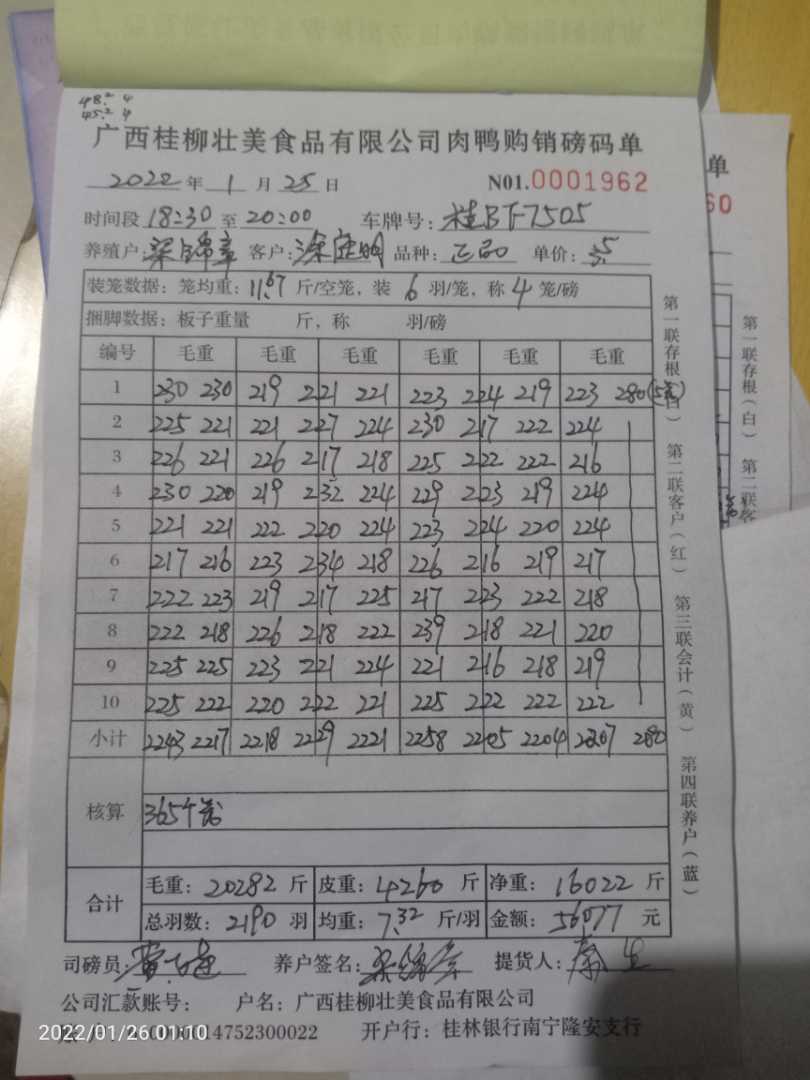 48.² 4
45.² 4
广西桂柳壮美食品有限公司肉鸭购销磅码单
2022年 1 月 25 日 N01.0001962
时间段 18:30 至 20:00 车牌号: 桂BF7505
养殖户: 梁锦章 客户: 品种: 正品 单价: 3.5
装笼数据: 笼均重: 11.67 斤/空笼, 装 6 羽/笼, 称 4 笼/磅
捆脚数据: 板子重量 斤, 称 羽/磅
编号 毛重 毛重 毛重 毛重 毛重 毛重
1 230 230 219 221 221 223 224 219 223 280(5笼)
2 225 221 221 227 224 230 217 222 224
3 226 221 226 217 218 225 222 222 216
4 230 220 219 232 224 229 223 219 224
5 221 221 222 220 224 223 224 220 224
6 217 216 223 234 218 226 216 219 217
7 222 223 219 217 225 217 223 222 218
8 222 218 226 218 222 239 218 221 220
9 225 225 223 221 224 221 216 218 219
10 225 222 220 222 221 225 222 222 222
小计 2243 2217 2218 2229 2221 2258 2205 2204 2207 280
核算 365个笼
合计 毛重: 20282 斤 皮重: 4260 斤 净重: 16022 斤
总羽数: 2190 羽 均重: 7.32 斤/羽 金额: 56077 元
司磅员: 养户签名: 梁锦章 提货人:
公司汇款账号: 户名: 广西桂柳壮美食品有限公司
14752300022 开户行: 桂林银行南宁隆安支行
2022/01/26 01:10
第一联存根(白) 第二联客户(红) 第三联会计(黄) 第四联养户(蓝)
单
60
第一联存根(白) 第二联客